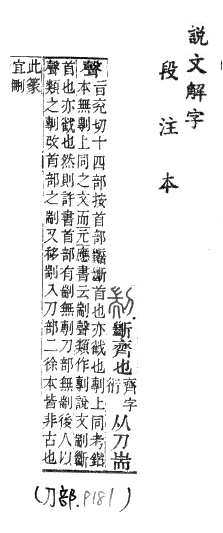 說文解字
段注本
斷齊也齊字衍从刀耑
聲旨兗切十四部按首部斷首也亦截也剸上同考鍇
本無剸上同之文而元應書云剬聲類作剸說文剬斷
首也亦截也然則許書首部有剬無剸刀部無剬後人以
聲類之剸改首部之剬又移剬入刀部二徐本皆非古也
此篆
宜刪
(刀部.P181)